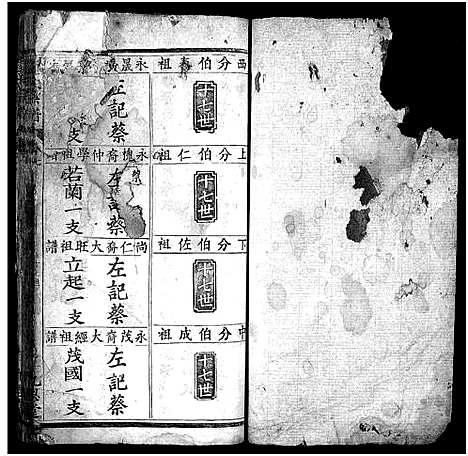 西分伯春祖
十七世
左記蔡
支
上分伯仁祖
十七世
永槐裔仲學祖
左記蔡
若蘭一支
下分伯佐祖
十七世
尚仁裔大旺祖譜
左記蔡
立起一支
中分伯成祖
十七世
永茂裔大經祖譜
左記蔡
茂國一支